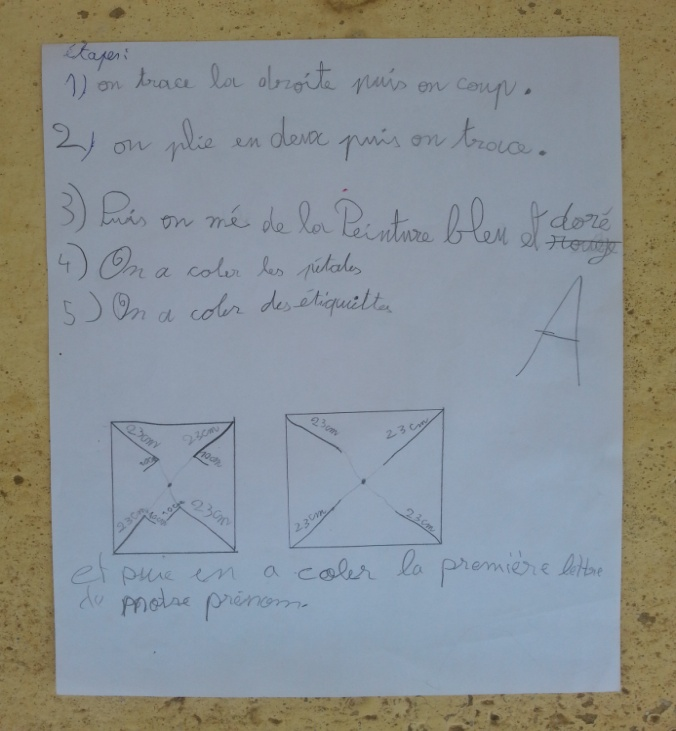 étapes:
1) on trace la droite puis on coup.
2) on plie en deux puis on trace.
3) Puis on mé de la Peinture bleu et doré
4) On a coler les pétales
5) On a coler des étiquettes
A
23cm 23cm
10cm 10cm
23cm 10cm 10cm 23cm
23cm 23cm
23cm 23cm
et puie en a coler la première lettre
du notre prénom.